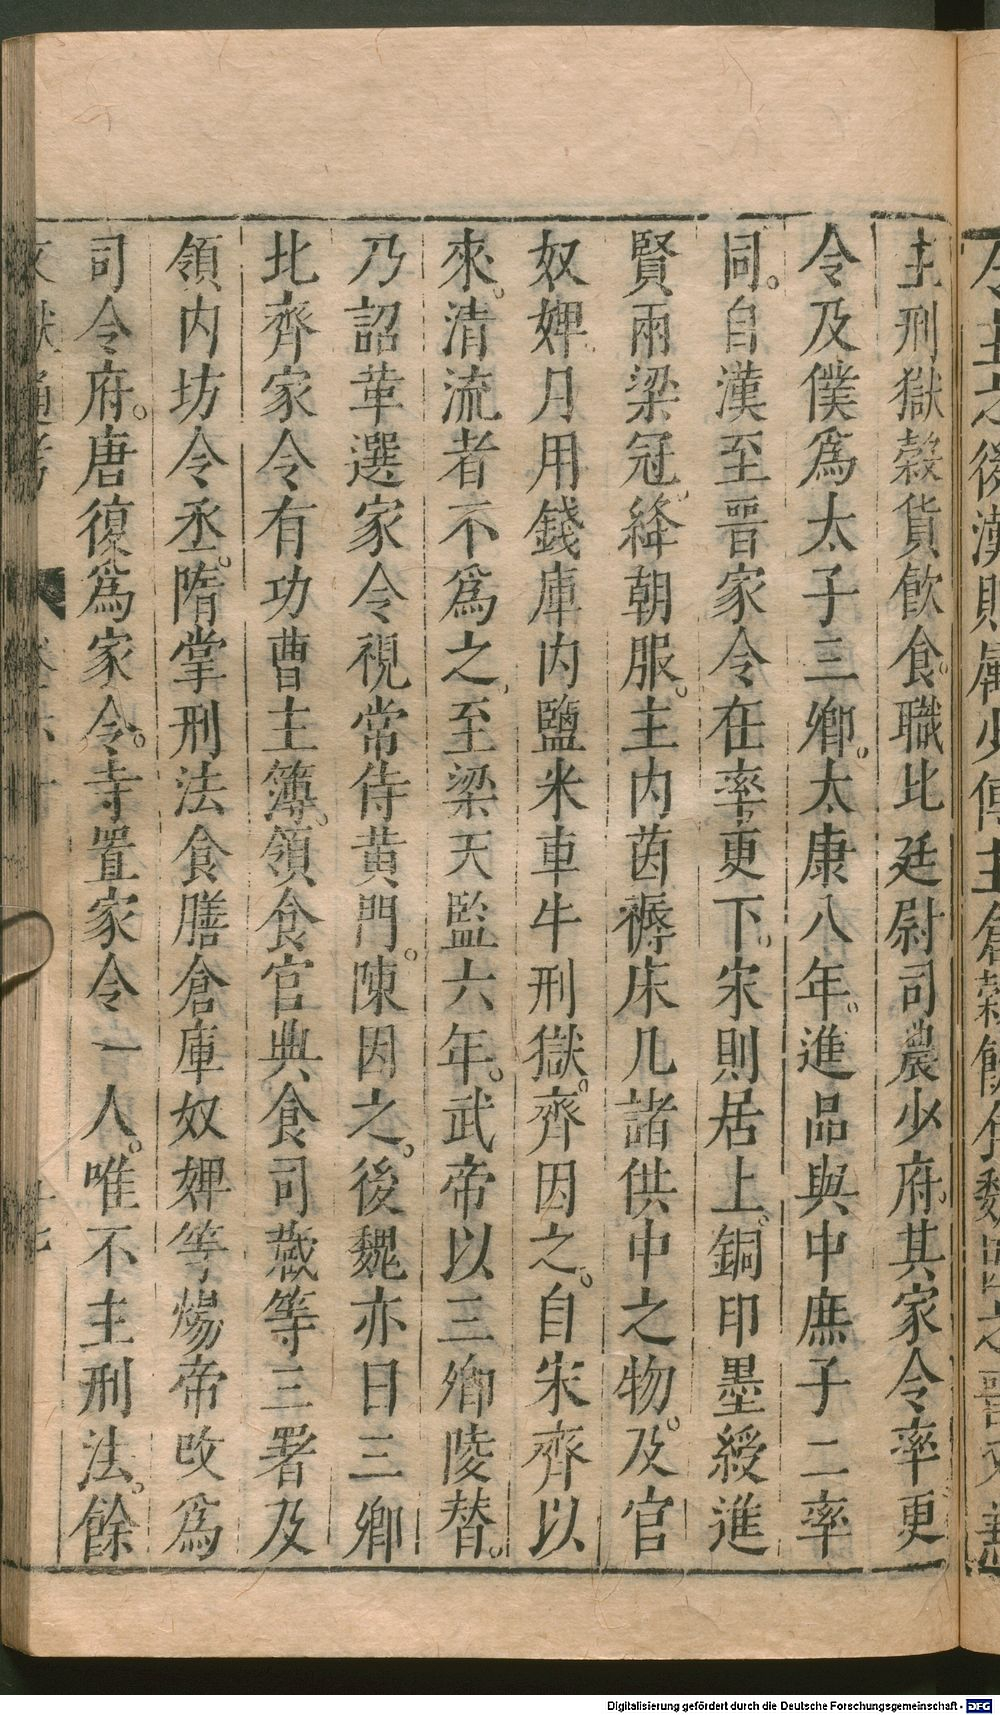 主刑獄穀貨飲食職比廷尉司農少府其家令率更
令及僕爲太子三卿。太康八年。進品與中庶子二率
同。自漢至晉家令在率更下。宋則居上。銅印墨綬進
賢兩梁冠絳朝服。主内茵褥床几諸供中之物。及官
奴婢月用錢庫内鹽米車牛刑獄。齊因之。自宋齊以
來。清流者不爲之至梁天監六年。武帝以三卿陵替。
乃詔革選家令視常侍黄門。陳因之。後魏亦曰三卿
北齊家令有功曹主簿。領食官典食司藏等三署及
領内坊令丞。隋掌刑法食膳倉庫奴婢等煬帝改爲
司令府。唐復爲家令。寺置家令一人。唯不主刑法。餘
文獻通考
卷六十
十七
Digitalisierung gefördert durch die Deutsche Forschungsgemeinschaft - DFG